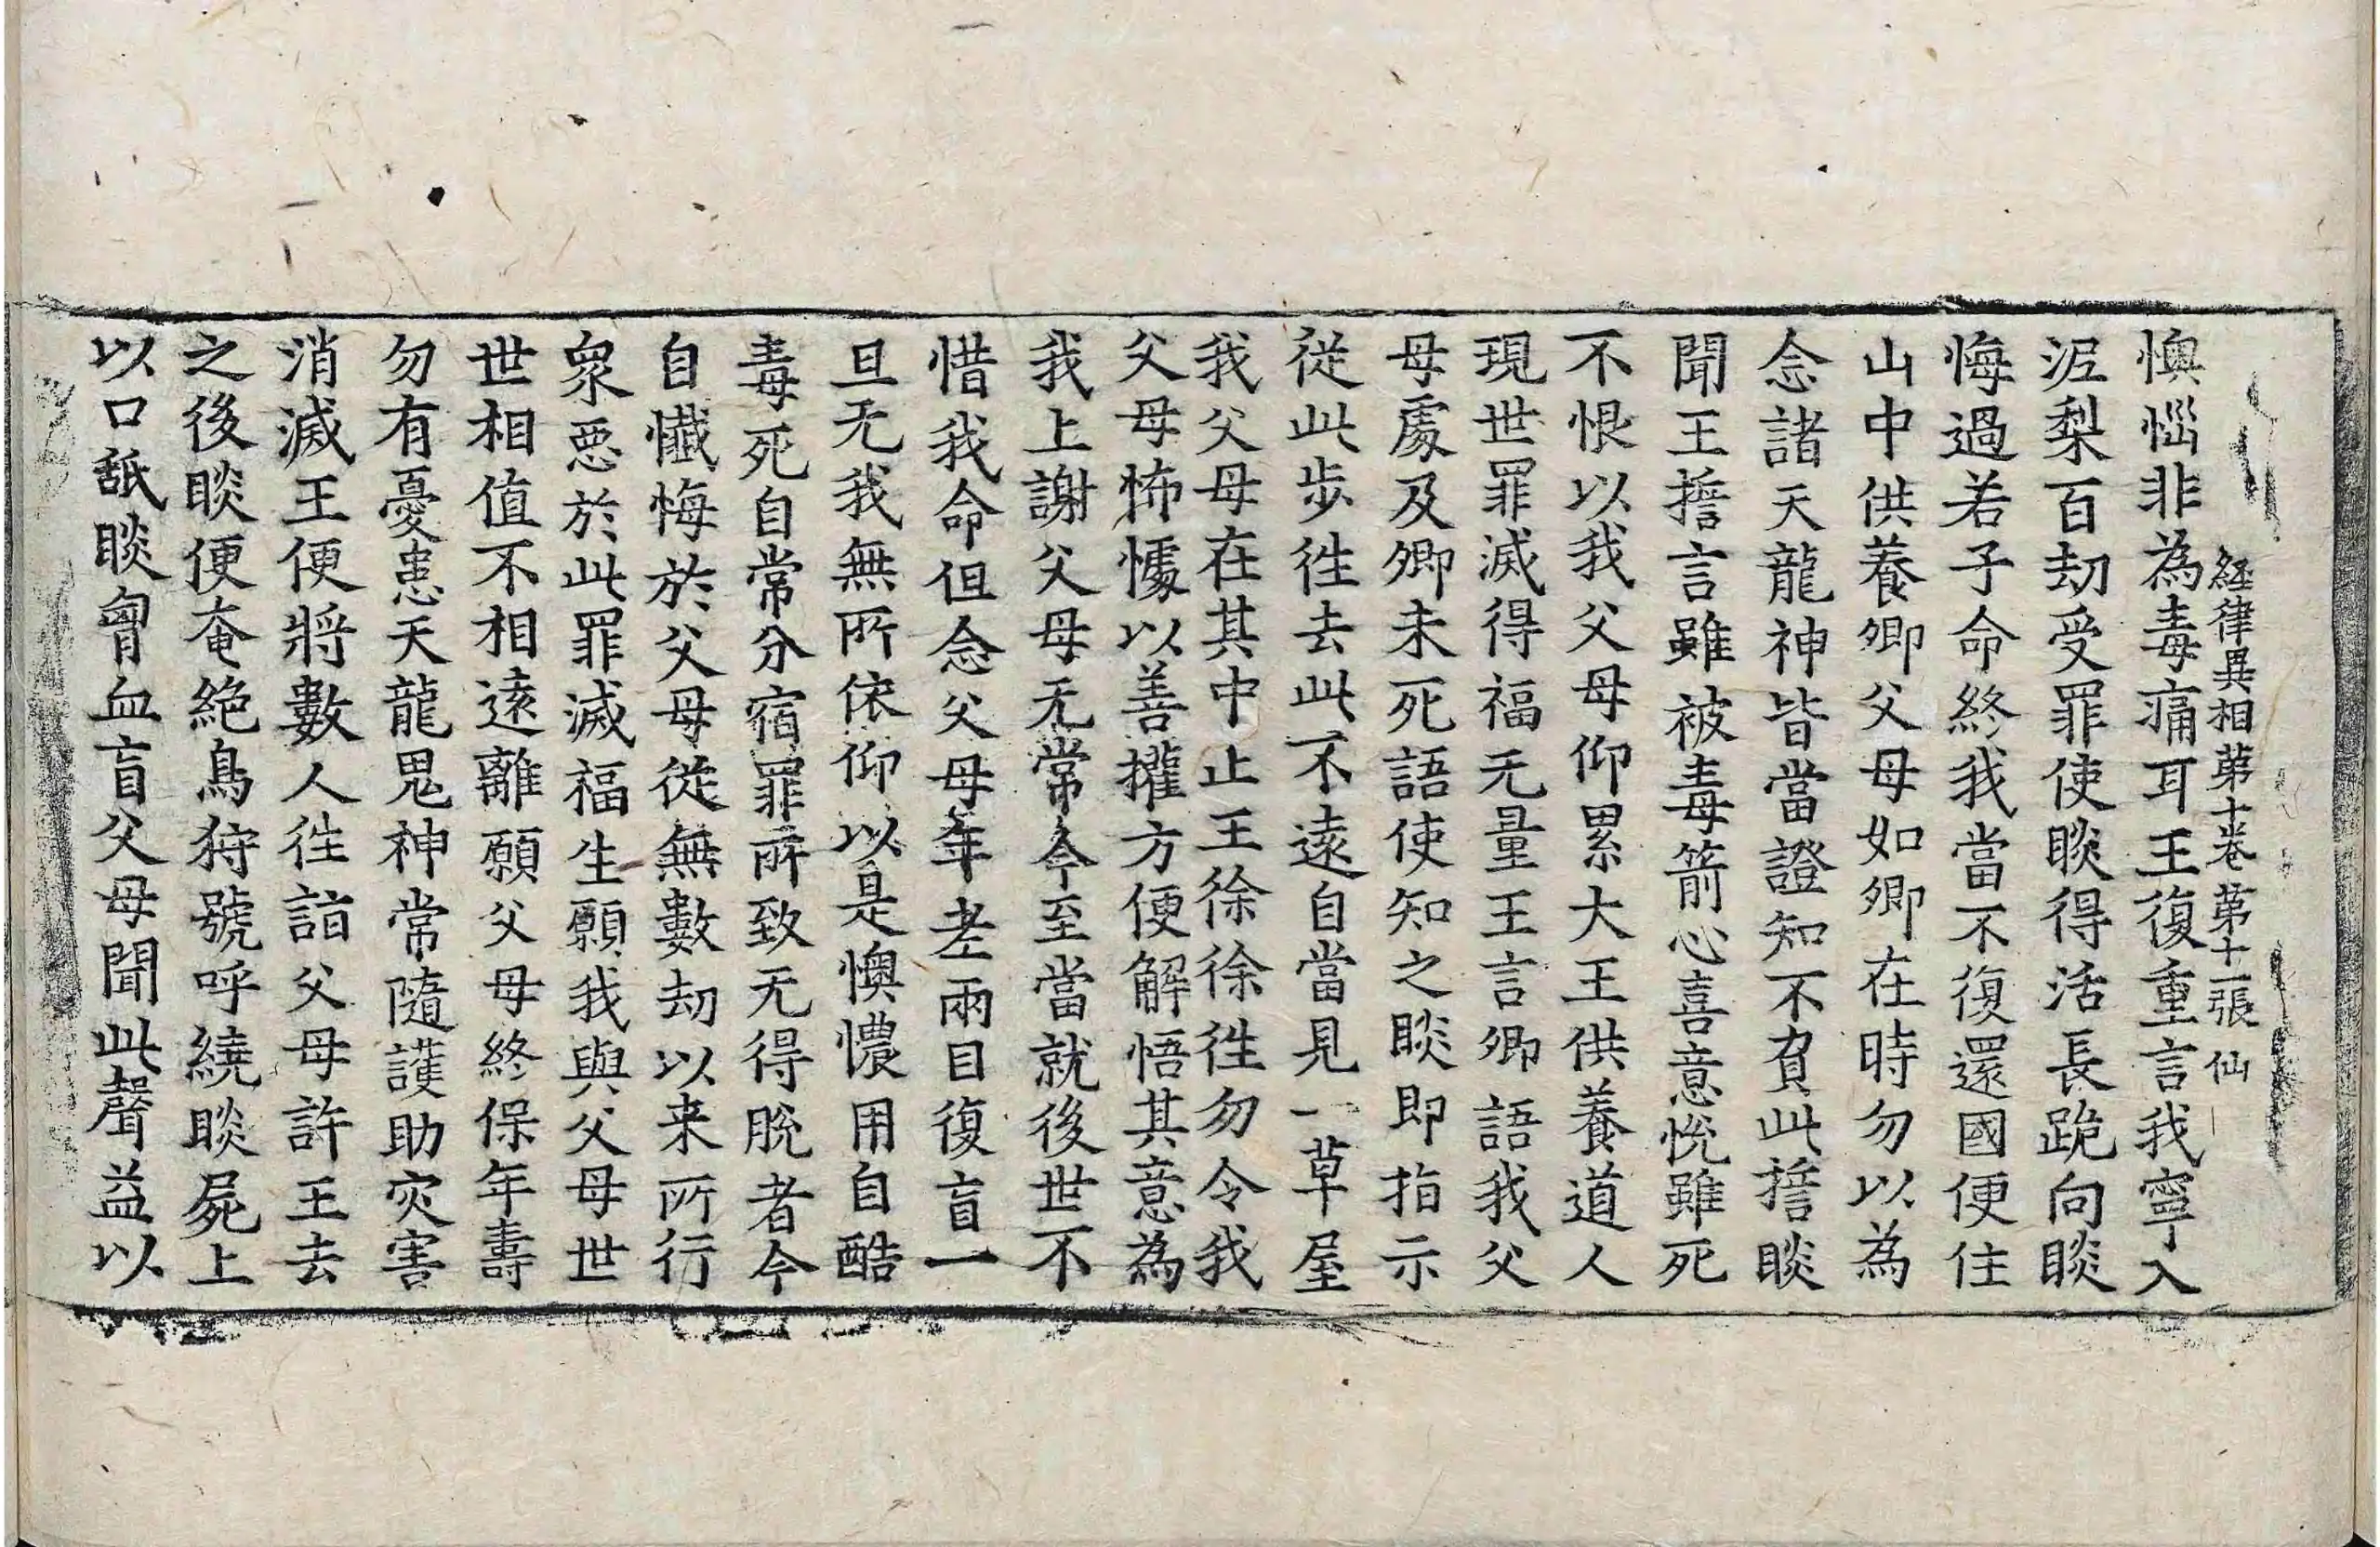 経律異相第十卷第十一張 仙
懊惱非為毒痛耳王復重言我寧入
泥梨百劫受罪使睒得活長跪向睒
悔過若子命終我當不復還國便住
山中供養卿父母如卿在時勿以為
念諸天龍神皆當證知不負此誓睒
聞王誓言雖被毒箭心喜意悅雖死
不恨以我父母仰累大王供養道人
現世罪滅得福无量王言卿語我父
母處及卿未死語使知之睒即指示
從此步徃去此不遠自當見一草屋
我父母在其中止王徐徐徃勿令我
父母怖懅以善權方便解悟其意為
我上謝父母无常今至當就後世不
惜我命但念父母年老兩目復盲一
旦无我無所依仰以是懊憹用自酷
毒死自常分宿罪所致无得脫者今
自懺悔於父母從無數劫以来所行
眾惡於此罪滅福生願我與父母世
世相值不相遠離願父母終保年壽
勿有憂患天龍鬼神常隨護助灾害
消滅王便將數人徃詣父母許王去
之後睒便奄絕鳥狩號呼繞睒屍上
以口舐睒匈血盲父母聞此聲益以